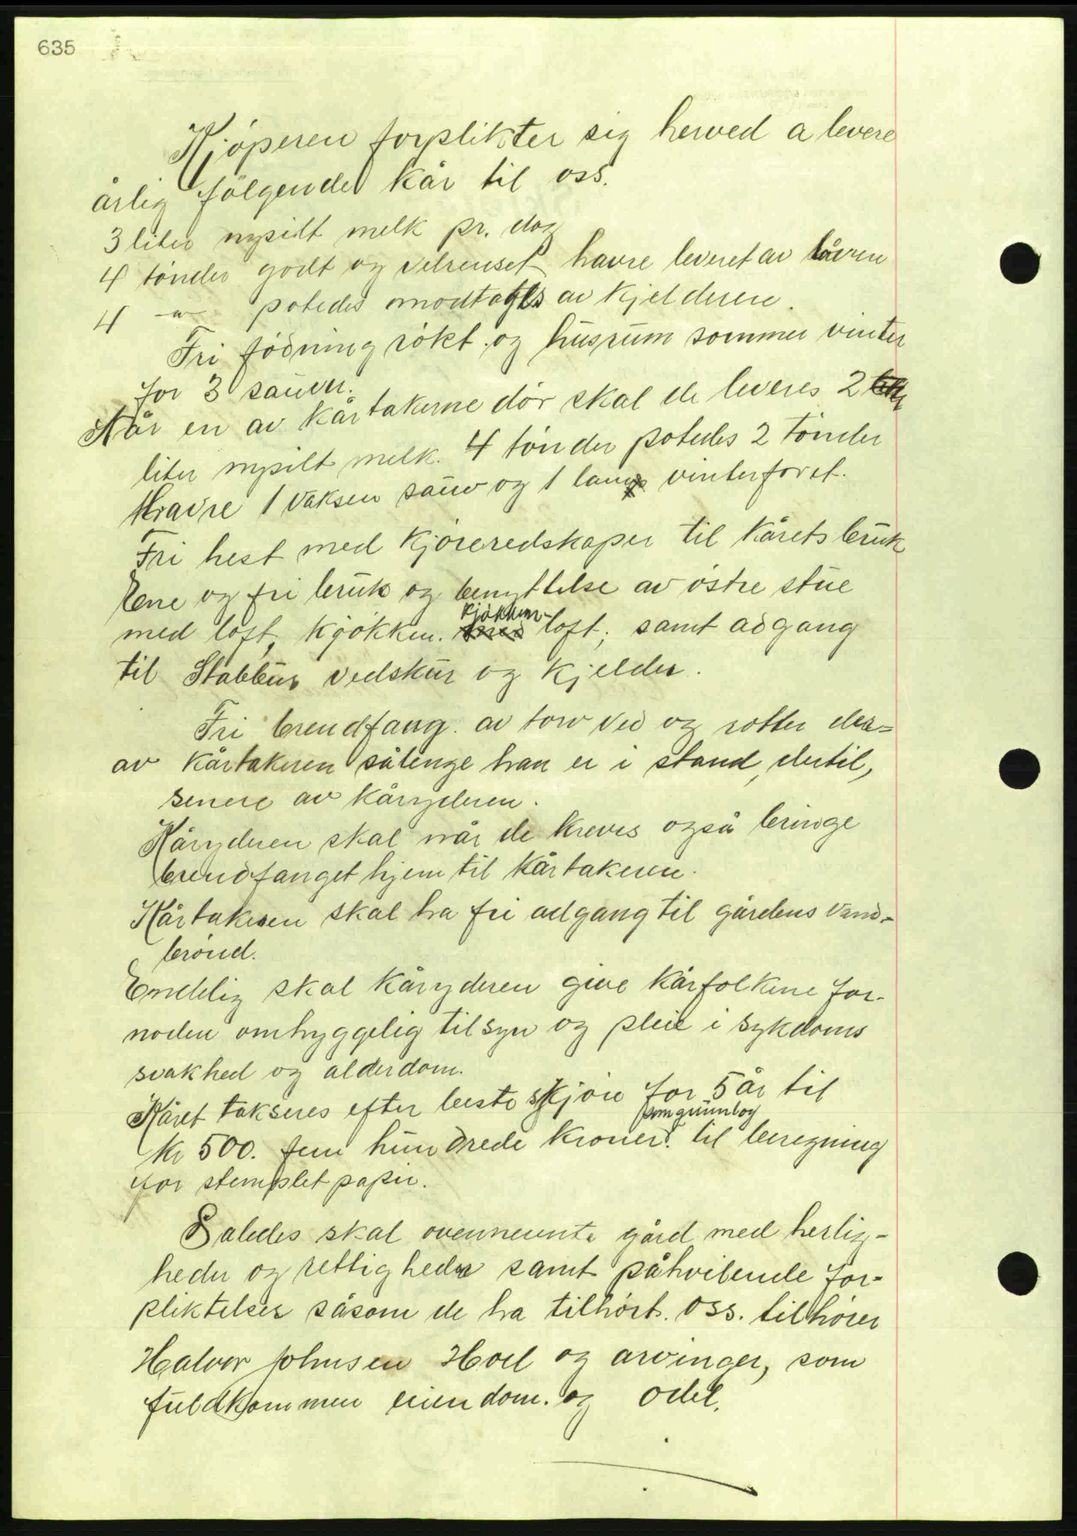 635
Kjøperen forplikter sig herved a levere
årlig følgende kår til oss.
3 liter nysilt melk pr. dag
4 tønder godt og velrenset havre leveret av låven
4 -"- potedes modtages av kjelderen.
Fri födning rökt og husrum sommer vinter
for 3 sauer.
Når en av kårtakerne dör skal de leveres 2
liter nysilt melk. 4 tönder potedes 2 tönder
Havre 1 vaksen sauv og 1 lam vinterforet.
Fri hest med kjöreredskaper til kårets bruk
Ene og fri bruk og benyttelse av östre stue
med loft, kjökken. kjökken- loft, samt adgang
til Stabbur vedskur og kjelder.
Fri brendfang. av torv ved og rotter der=
av kårtakeren sålenge han er i stand, dertil,
senere av kåryderen.
Kåryderen skal når de kreves også bringe
brendfanget hjem til kårtakeren.
Kårtakeren skal ha fri adgang til gårdens vand-
brönd.
Endelig skal kåryderen give kårfolkene for-
noden omhyggelig tilsyn og pleie i sykdoms
svakhed og alderdom.
Kåret takseres efter beste skjön for 5 år til
kr 500. fem hundrede kroner. som grunlag til beregning
for stemplet papir.
Saledes skal ovennevnte gård med herlig-
heder og rettigheder samt påhvilende for-
pliktelser såsom de ha tilhört. oss. tilhörer
Halvor Johnsen Hoel og arvinger, som
fuldkommen eiendom. og odel.